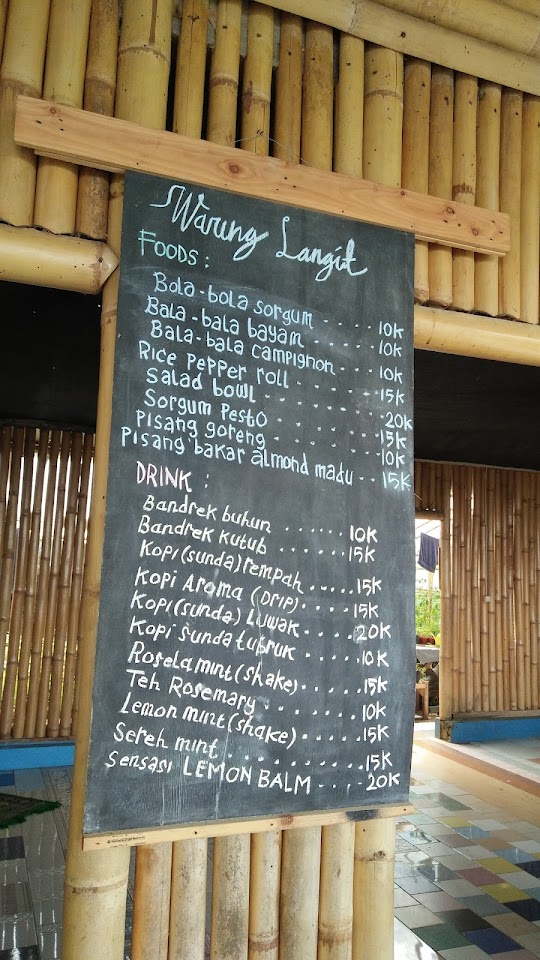 Warung Langit
FOODS:
Bola-bola sorgum ..... 10K
Bala-bala bayam ..... 10K
Bala-bala campignon .... 10K
Rice pepper roll ....... 15K
Salad bowl ......... 20K
Sorgum Pesto ........ 15K
Pisang goreng ....... 10K
Pisang bakar almond madu .. 15K
DRINK :
Bandrek buhun ...... 10K
Bandrek kutub ...... 15K
Kopi (sunda) rempah ..... 15K
Kopi Aroma (DRIP) .... 15K
Kopi (sunda) Luwak .... 20K
Kopi sunda tubruk .... 10K
Rosela mint (shake) ..... 15K
Teh Rosemary ........ 10K
Lemon mint (shake) ..... 15K
Sereh mint .......... 15K
Sensasi LEMON BALM .... 20K